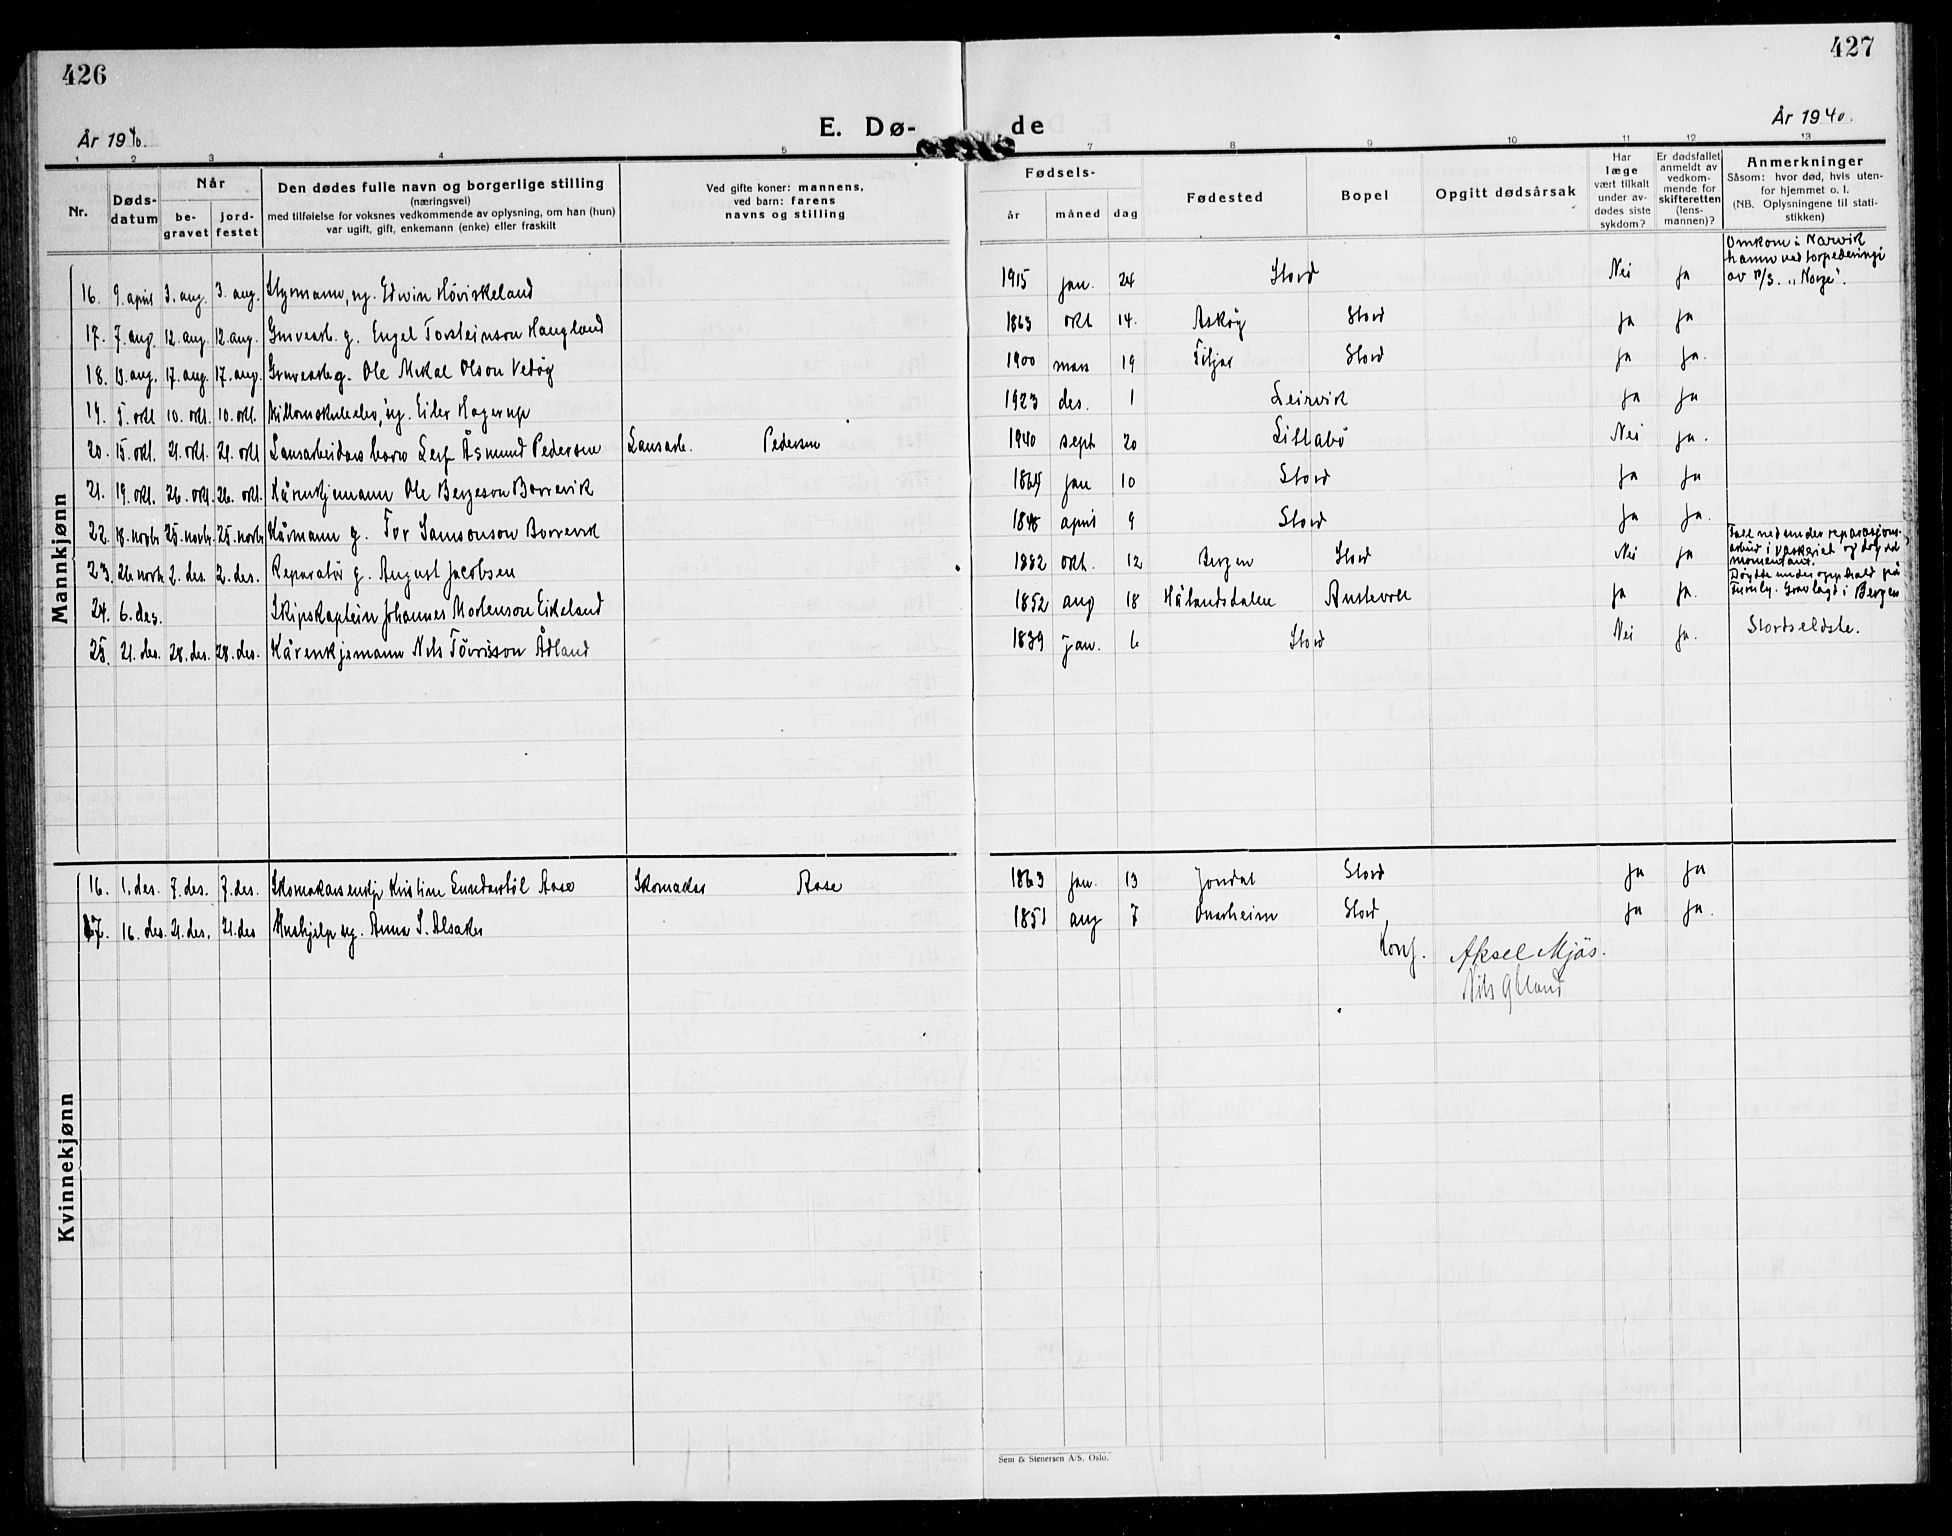 426
427
År 1940.
E. Dø-
de
År 1940.
1 2 3 4 5 7 8 9 10 11 12 13
Nr.
Døds-
datum
Når
be-
gravet
jord-
festet
Den dødes fulle navn og borgerlige stilling
(næringsvei)
med tilføielse for voksnes vedkommende av oplysning, om han (hun)
var ugift, gift, enkemann (enke) eller fraskilt
Ved gifte koner: mannens,
ved barn: farens
navns og stilling
Fødsels-
år
måned
dag
Fødested
Bopel
Opgitt dødsårsak
Har
læge
vært tilkalt
under av-
dødes siste
sykdom?
Er dødsfallet
anmeldt av
vedkom-
mende for
skifteretten
(lens-
mannen)?
Anmerkninger
Såsom: hvor død, hvis uten-
for hjemmet o. l.
(NB. Oplysningene til stati-
stikken)
Mannkjønn
16. 9. april 3. aug. 3. aug. Styrmann, ug. Edwin Høviskeland 1915 jan. 24 Stord Nei ja
Omkom i Narvik
hamn ved torpederingi
av P/S. „Norge".
17. 7. aug. 12. aug. 12. aug. Gruvearb. g. Engel Torsteinson Haugland 1863 okt 14. Askøy Stord ja ja
18. 13. aug. 17. aug. 17. aug. Gruvearb g. Ole Mikal Olson Vedøy 1900 mars 19 Fitjar Stord ja ja.
19. 5. okt 10. okt. 10. okt. Millomskuleelev, ug. Eiler Hagerup 1923 des. 1 Leirvik ja ja
20. 15. okt. 21. okt. 21. okt Lausarbeidars born Leif Åsmund Pedersen Lausarb. Pedersen 1940 sept 20 Litlabø Nei ja.
21. 19. okt. 26. okt. 26. okt. Kårenkjemann Ole Bergeson Borrevik 1864 jan 10 Stord ja ja
22. 18. novbr 25. novbr. 25. novbr Kårmann g. Tor Samsonson Borrevik 1848 april 9 Stord ja ja.
23. 26 novbr 2. des. 2. des. Reparatør g. August Jacobsen 1882 okt. 12 Bergen Stord Nei ja
Fall ned under reparasjons-
arbeid i vaskeriet og døydde
momentant.
24. 6. des. Skipskaptein Johannes Mortenson Eikeland 1852 aug 18 Hålandsdalen Austevoll ja ja.
Døydde under opphald på
Furuly. Gravlagd i Bergen
25. 21. des. 28. des. 28. des. Kårenkjemann Nils Tövrisson Ådland 1839 jan. 6 Stord Nei ja.
Stords eldste.
Kvinnekjønn
16. 1. des. 7. des. 7. des. Skomakarsenkje Kristine Aase Skomaker Aase 1863 jan. 13 Jondal Stord ja ja
17. 16. des. 21. des. 21. des Hushjelp ug. Anna S. Alsaker 1851 aug 7 Onarheim Stord ja ja.
Konf. Aksel Mjös.
Nils
Sem & Stenersen A/S, Oslo.